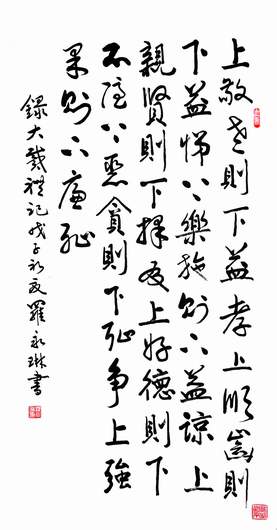 上敬老則下益孝上順齒則
下益悌上樂施則下益諒上
親賢則下擇友上好德則下
不隱上惡貪則下恥爭上強
果則下廉恥
錄大戴禮記戊子初夏羅永琳書